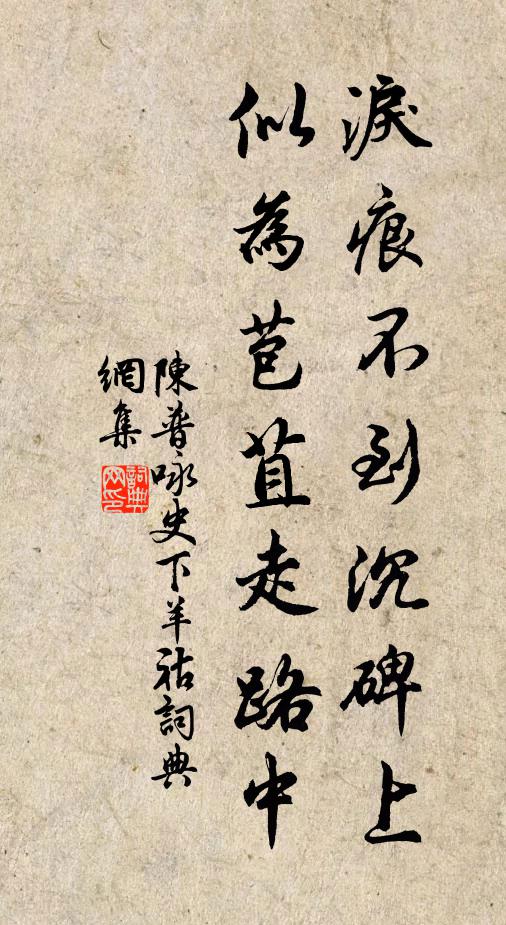 淚痕不到沉碑上
似為苞苴走路中
陳普咏史下羊祜詞典
網集
詞典
网印